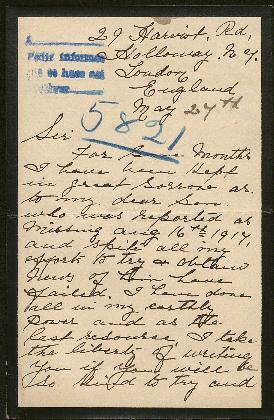 29 Harviot Rd,
Holloway. N 7.
London
England
Pedir informe
que se hace
May 27th
5821
Sir.
For Months
I have been kept
in great sorrow as
to my dear Son.
who was reported as
missing aug 16th 1917,
and spite all my
efforts to try & obtain
News of have
failed. I have done
all in my earthly
Power and as the
last resource, I take
the liberty of writing
You if You will be
So Kind to try and